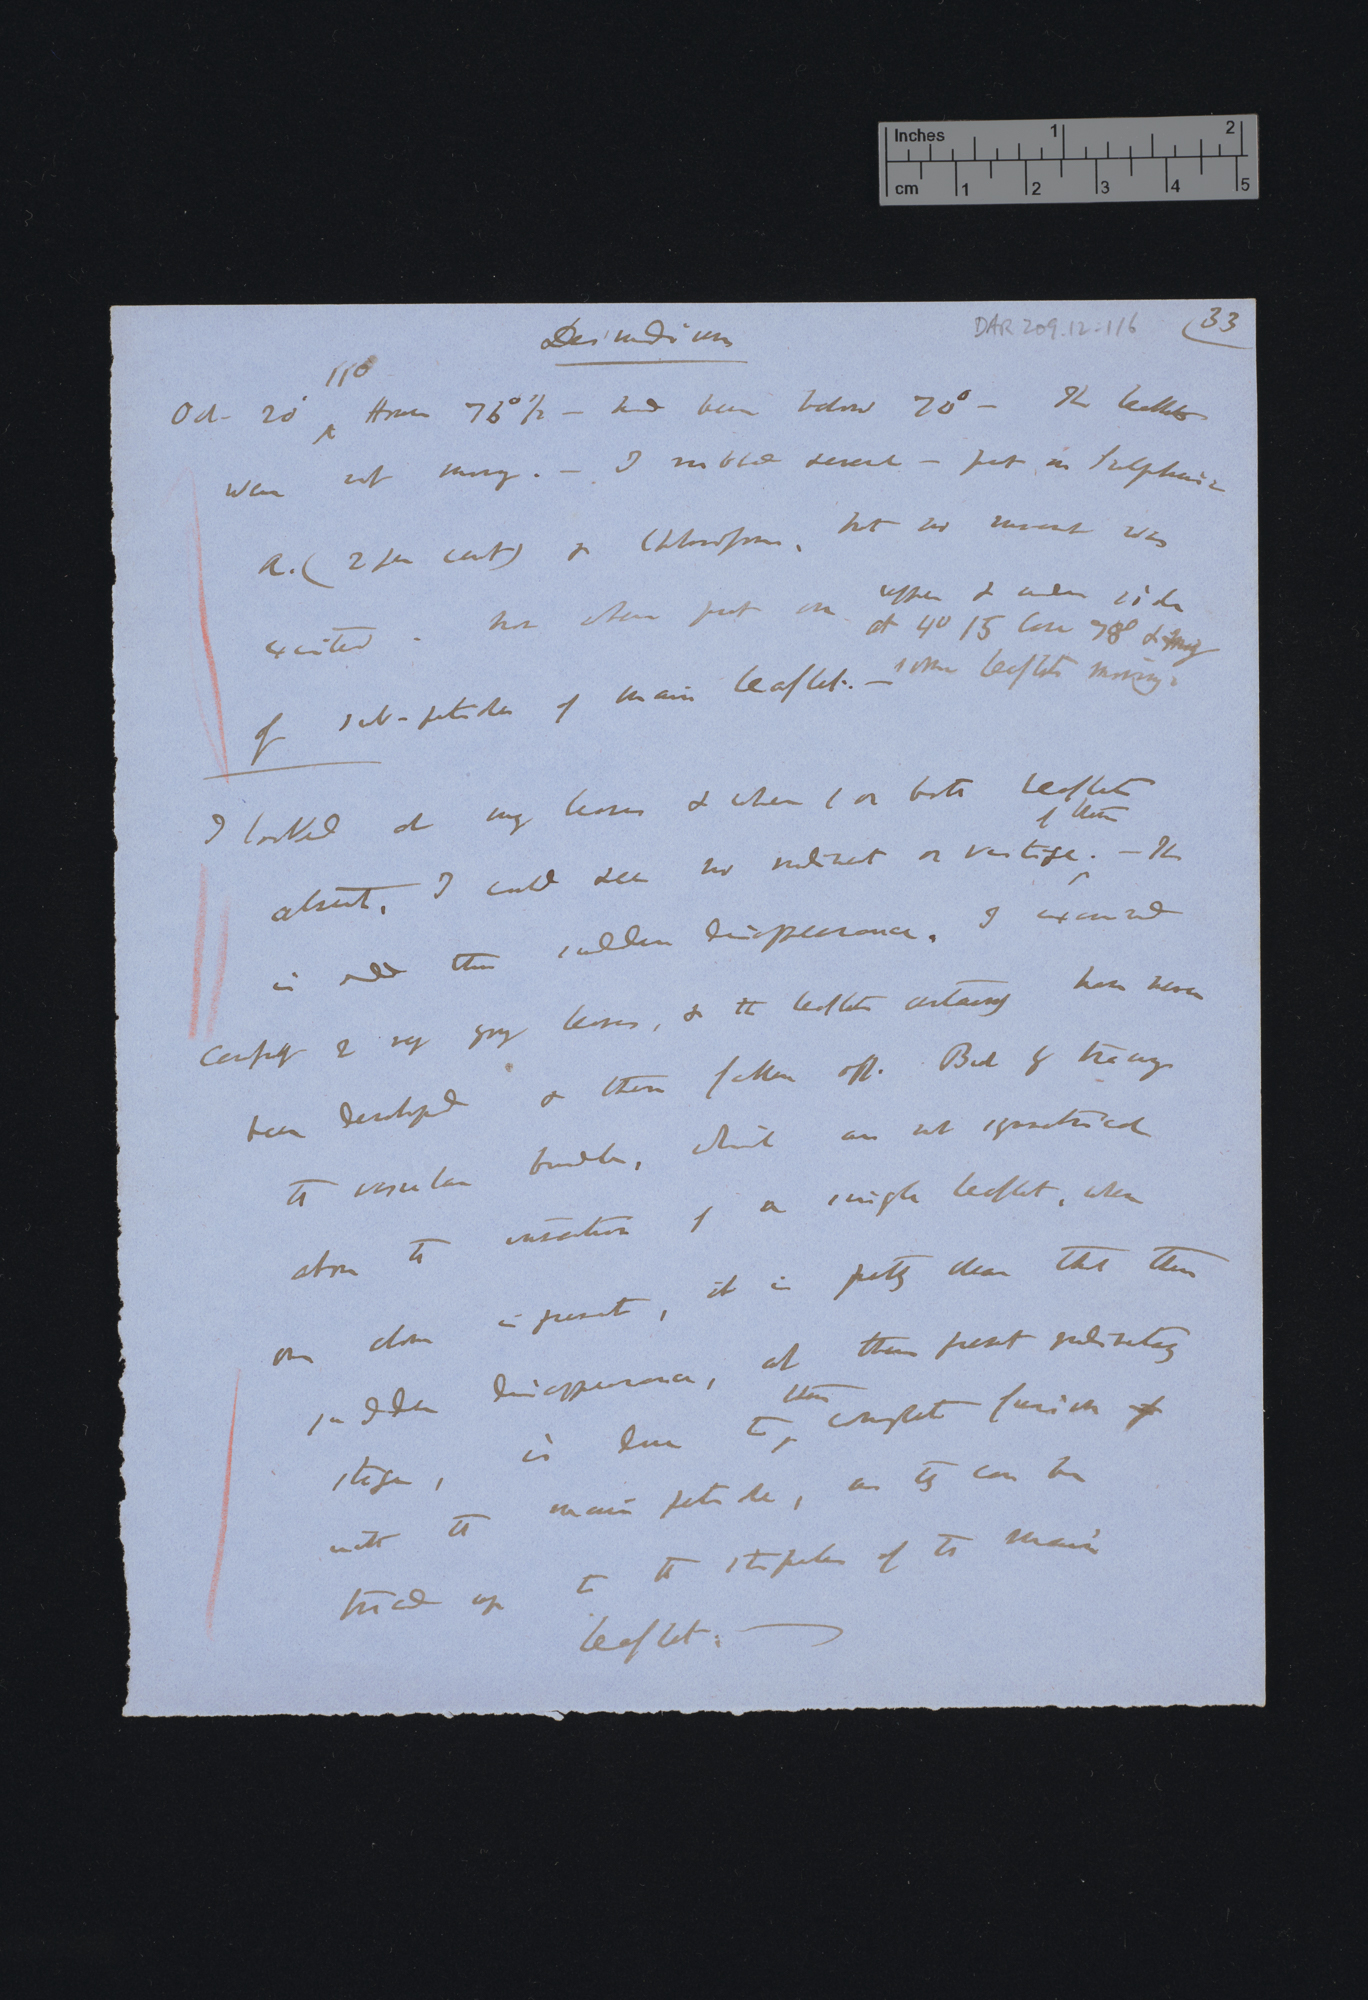 Inches 1 2
cm 1 2 3 4 5
Desmodium
DAR 209.12:116
(33
Oct. 20 11° House 76°½ — had been below 70° — The leaflets
were not moving. — I rubbed several — put in Sulphuric
A. (2 per cent) & Chloroform, but no movement was
excited. nor when put on upper & under side
at 4° 15 78°
of sub-petioles of main leaflet. — some leaflets moving.
I looked at leaves & when 1 or both leaflets
of them
absent, I could see no rudiment or vestige. — The
is odd this sudden disappearance. I examined
carefully 2 leaves, & the leaflets certainly have never
been developed & then fallen off. But by tracing
the vascular bundles, which are not symmetrical
above the insertion of a single leaflet, when
one alone is present, it is pretty clear that their
sudden disappearance, at their present rudimentary
stage, is due to complete fusion
their
with the main petiole, as they can be
traced up to the stipules of the main
leaflet.